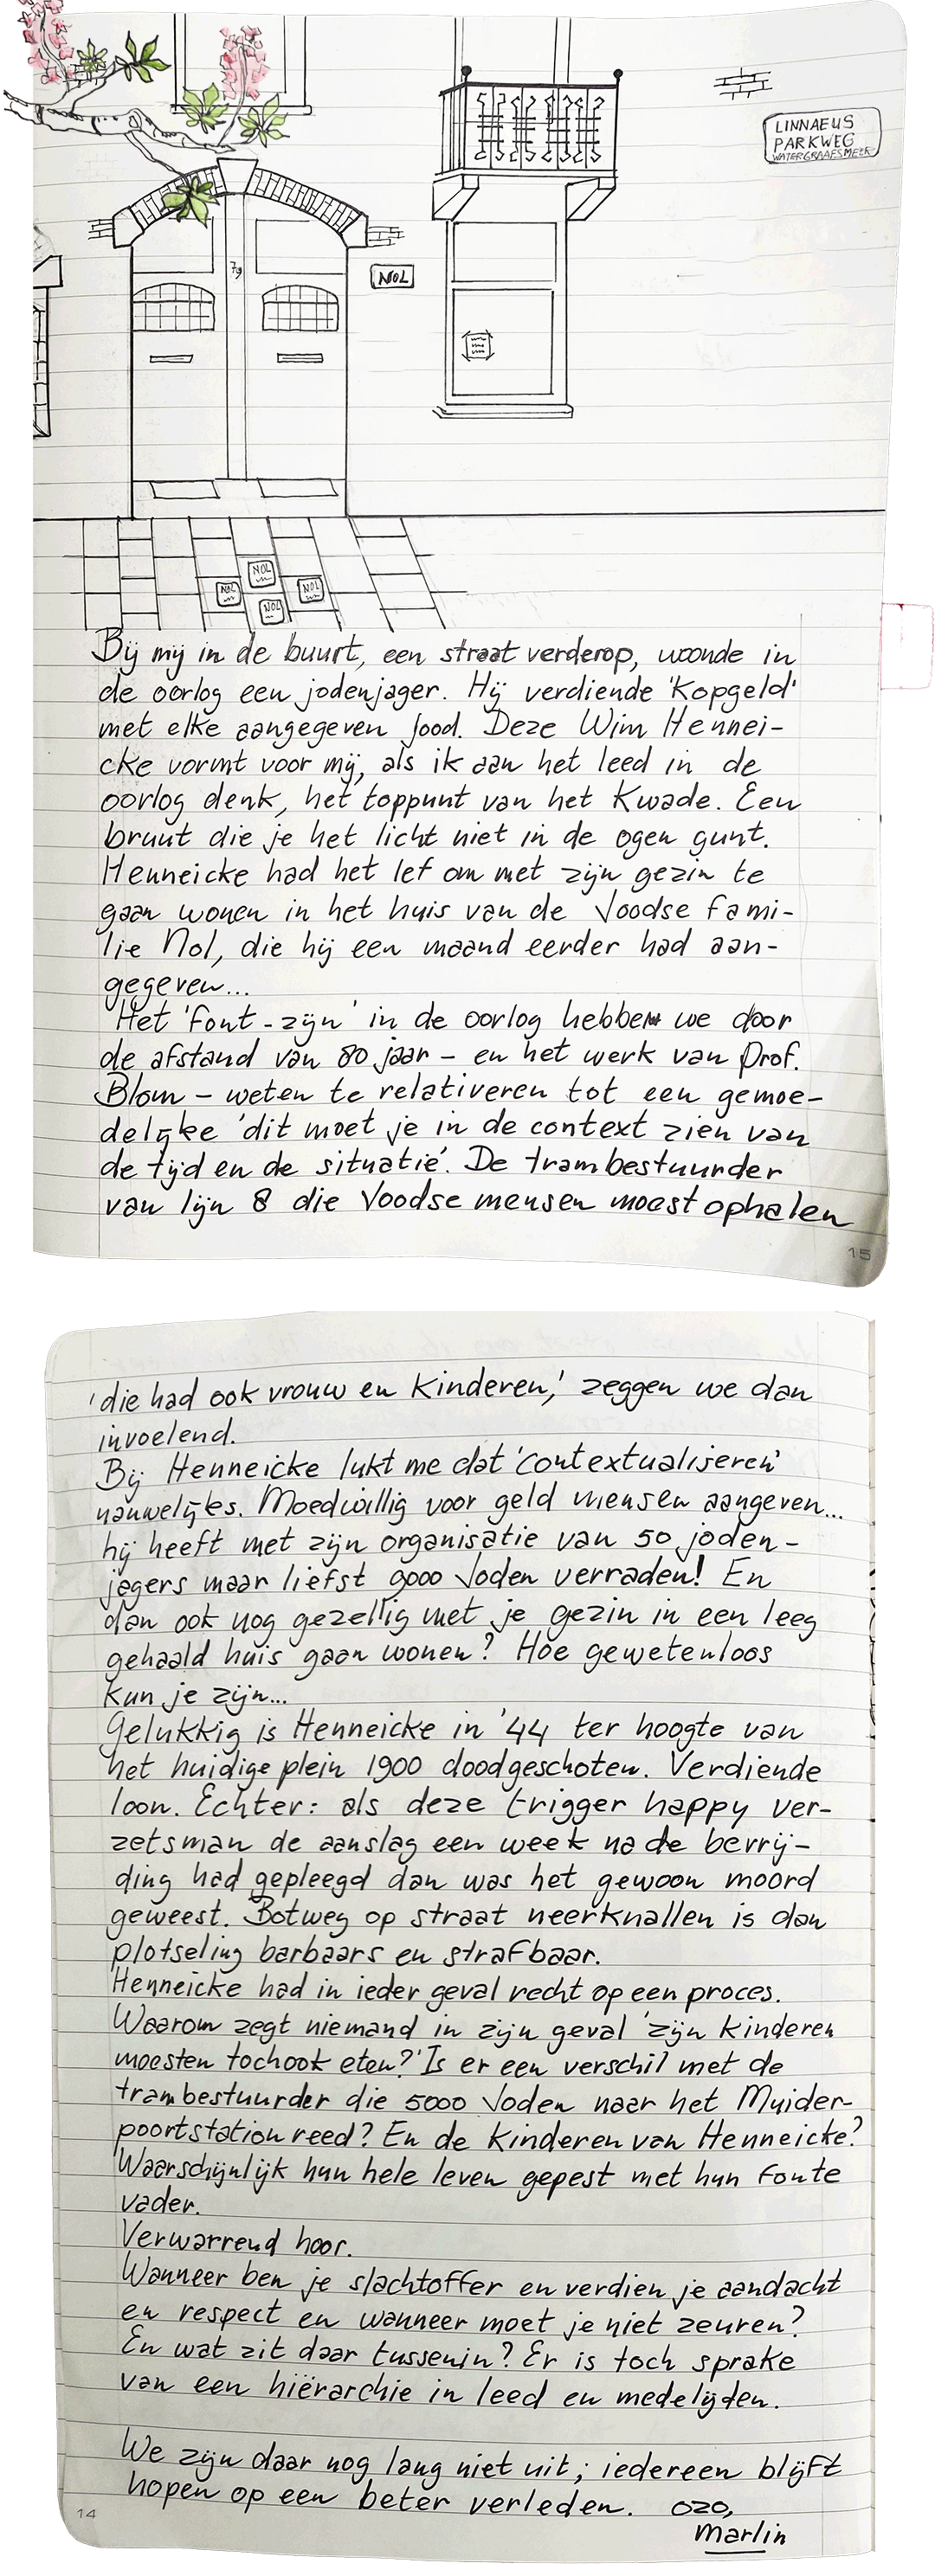 LINNAEUS
PARKWEG
WATERGRAAFSMEER
79
NOL
NOL
NOL
NOL
NOL
Bij mij in de buurt, een straat verderop, woonde in
de oorlog een jodenjager. Hij verdiende 'Kopgeld'
met elke aangegeven Jood. Deze Wim Hennei-
cke vormt voor mij, als ik aan het leed in de
oorlog denk, het toppunt van het Kwade. Een
bruut die je het licht niet in de ogen gunt.
Henneicke had het lef om met zijn gezin te
gaan wonen in het huis van de Joodse fami-
lie Nol, die hij een maand eerder had aan-
gegeven...
Het 'fout-zijn' in de oorlog hebben we door
de afstand van 80 jaar - en het werk van Prof.
Blom - weten te relativeren tot een gemoe-
delijke 'dit moet je in de context zien van
de tijd en de situatie'. De trambestuurder
van lijn 8 die Joodse mensen moest ophalen
15
'die had ook vrouw en kinderen,' zeggen we dan
invoelend.
Bij Henneicke lukt me dat 'contextualiseren'
nauwelijks. Moedwillig voor geld mensen aangeven...
hij heeft met zijn organisatie van 50 joden-
jagers maar liefst 9000 Joden verraden! En
dan ook nog gezellig met je gezin in een leeg
gehaald huis gaan wonen? Hoe gewetenloos
kun je zijn...
Gelukkig is Henneicke in '44 ter hoogte van
het huidige plein 1900 doodgeschoten. Verdiende
loon. Echter: als deze trigger happy ver-
zetsman de aanslag een week na de bevrij-
ding had gepleegd dan was het gewoon moord
geweest. Botweg op straat neerknallen is dan
plotseling barbaars en strafbaar.
Henneicke had in ieder geval recht op een proces.
Waarom zegt niemand in zijn geval 'zijn kinderen
moesten toch ook eten?' Is er een verschil met de
trambestuurder die 5000 Joden naar het Muider-
poortstation reed? En de kinderen van Henneicke?
Waarschijnlijk hun hele leven gepest met hun foute
vader.
Verwarrend hoor.
Wanneer ben je slachtoffer en verdien je aandacht
en respect en wanneer moet je niet zeuren?
En wat zit daar tussenin? Er is toch sprake
van een hiërarchie in leed en medelijden.
We zijn daar nog lang niet uit; iedereen blijft
hopen op een beter verleden. ozo,
Marlin
14